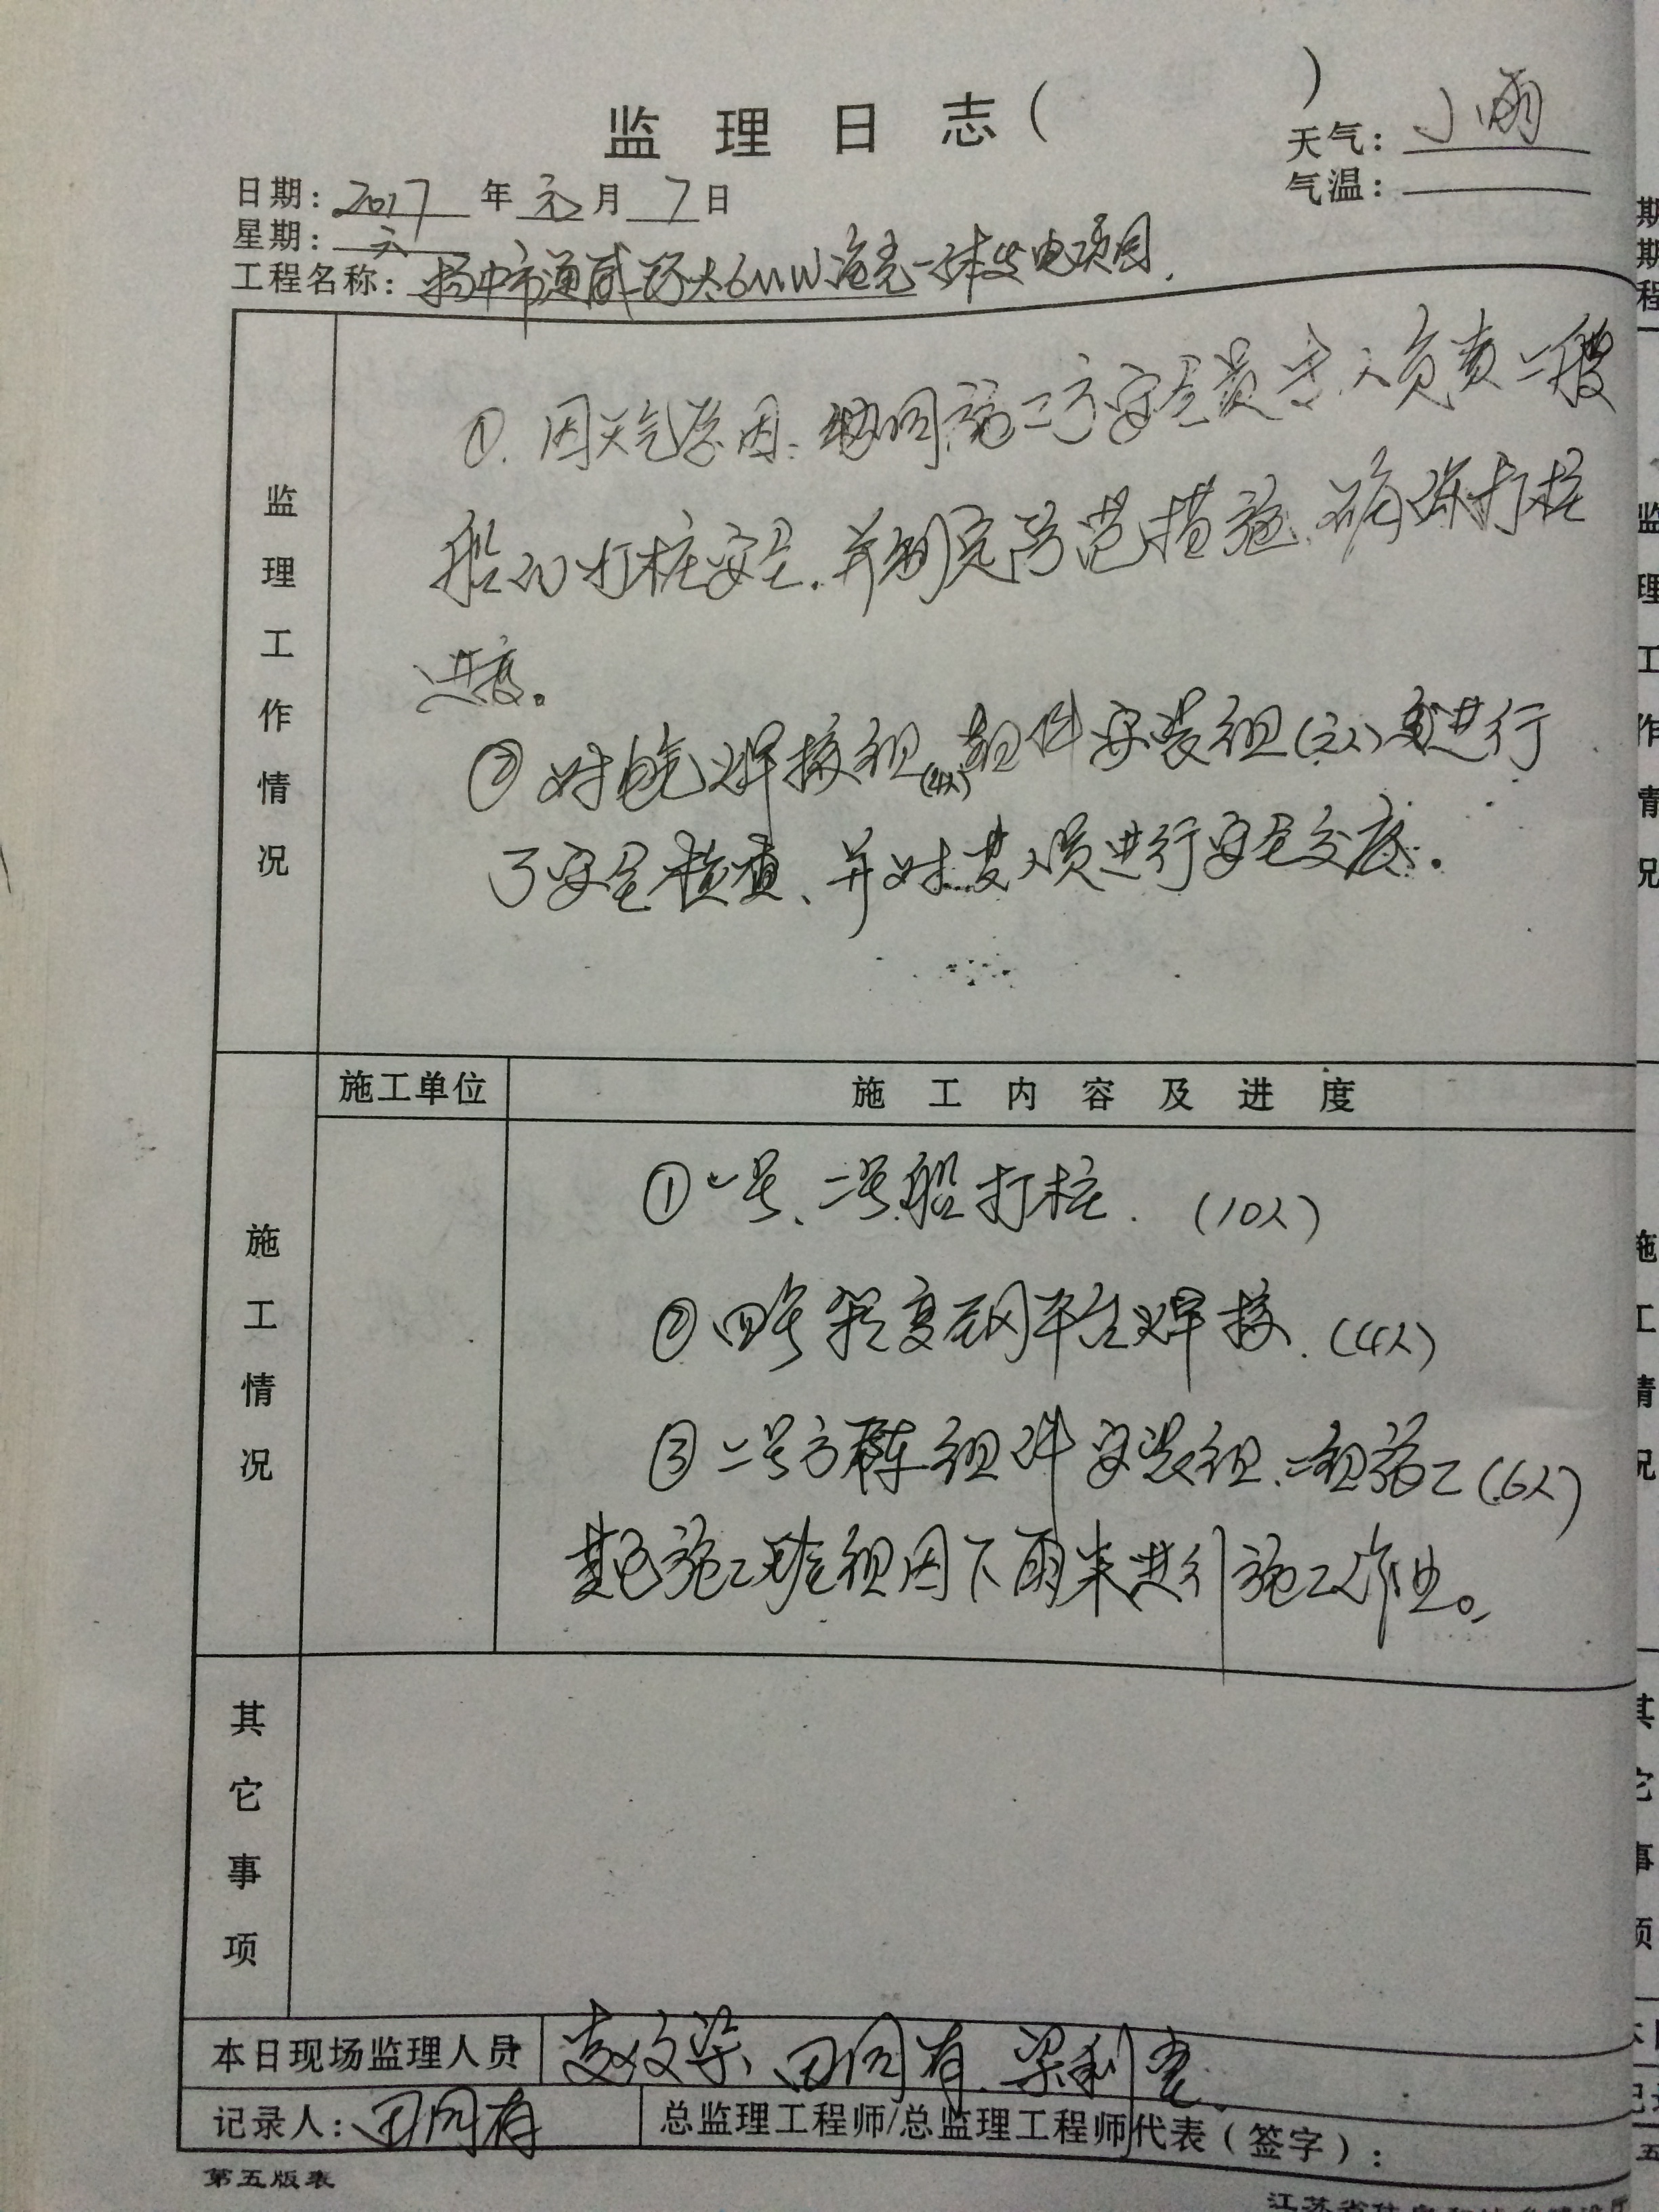 监理日志( )
天气: 小雨
气温:
日期: 2017 年 元 月 7 日
星期: 六
工程名称: 扬中市通威 6MW渔光一体发电项目
监理工作情况
①. 因天气原因, 协同施工方安全员 负责
船的打桩安全. 并制定防范措施. 确保打桩
进度。
② 对电气焊接组(4人) 组件安装组(6人) 进行
了安全检查、并对 人员进行安全交底.
施工单位
施工内容及进度
施工情况
① 一号、二号船打桩. (10人)
② 四号箱变钢平台焊接. (4人)
③ 二号方阵组件安装组. 二组施工(6人)
其它施工班组因下雨未进行施工作业。
其它事项
本日现场监理人员 田同有、梁利
记录人: 田同有
总监理工程师/总监理工程师代表(签字):
第五版表
江苏省住房和城乡建设厅